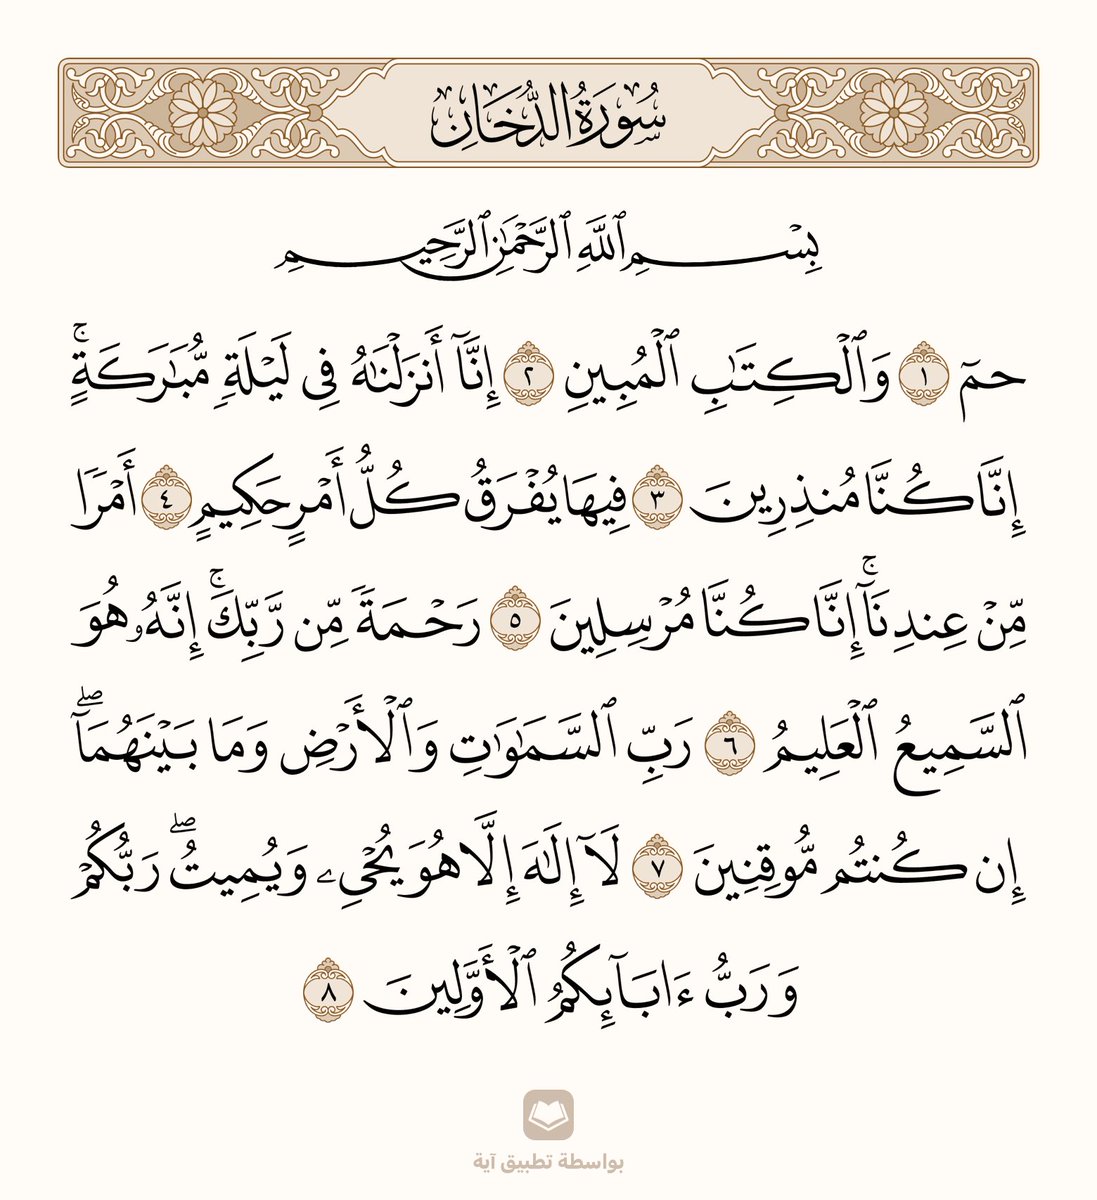 سُورَةُ الدُّخَانِ
بِسْمِ ٱللَّهِ ٱلرَّحْمَٰنِ ٱلرَّحِيمِ
حمٓ ١ وَٱلْكِتَٰبِ ٱلْمُبِينِ ٢ إِنَّآ أَنزَلْنَٰهُ فِى لَيْلَةٍ مُّبَٰرَكَةٍ ۚ
إِنَّا كُنَّا مُنذِرِينَ ٣ فِيهَا يُفْرَقُ كُلُّ أَمْرٍ حَكِيمٍ ٤ أَمْرًا
مِّنْ عِندِنَآ ۚ إِنَّا كُنَّا مُرْسِلِينَ ٥ رَحْمَةً مِّن رَّبِّكَ ۚ إِنَّهُۥ هُوَ
ٱلسَّمِيعُ ٱلْعَلِيمُ ٦ رَبِّ ٱلسَّمَٰوَٰتِ وَٱلْأَرْضِ وَمَا بَيْنَهُمَآ ۖ
إِن كُنتُم مُّوقِنِينَ ٧ لَآ إِلَٰهَ إِلَّا هُوَ يُحْىِۦ وَيُمِيتُ ۖ رَبُّكُمْ
وَرَبُّ ءَابَآئِكُمُ ٱلْأَوَّلِينَ ٨
بواسطة تطبيق آية